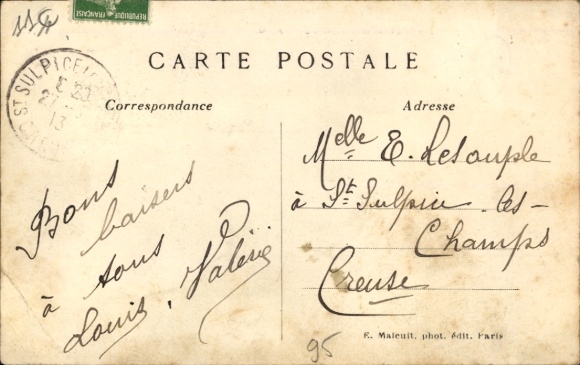 554
REPUBLIQUE FRANÇAISE
CARTE POSTALE
ST SULPICE
13
Correspondance
Adresse
Bons
baisers
à tous
Louis, Valérie
Melle E. Lesouple
à St Sulpice-les-
Champs
Creuse
E. Malcuit, phot. édit. Paris
95